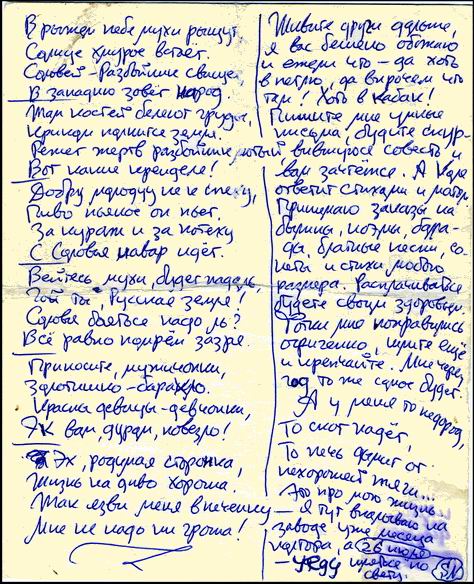 В рыжем небе мухи рыщут,
Солнце хмурое встаёт.
Соловей-разбойник свищет,
В западню зовёт народ.
Там костей белеют груды,
Кричит земля.
Режет жертв разбойник лютый
Вот какие кренделя!
Добру молодцу не к спеху,
Пиво пьяное он пьёт.
За кураж и за потеху
С Соловья навар идёт.
Вейтесь, мухи, будет падаль,
Гой ты, Русская земля!
Соловья бояться надо ль?
Всё равно помрём зазря.
Приносите, мужичонки,
Золотишко-барахло.
Красна девицы-девчонки,
Эк вам, дурам, повезло!
Эх, родимая сторонка,
Жизнь на диво хороша.
Так язви меня в печёнку —
Мне не надо ни гроша!
Живите други дальше,
я вас бешено обожаю
и ежели что - да хоть
в петлю, да впрочем что
там! Хоть в кабак!
Пишите мне умные
письма, будите
вившуюся совесть и
вам зачтётся. А Vаря
ответит стихами и
Принимаю заказы на
былины, поэмы,
да, блатные песни, со-
неты и стихи любого
размера. Расплачиваться
будете своим здоровьем.
Тотки мне понравились
ещё
и крепчайте. Мне через
год то же самое будет.
А у меня то недород,
То скот падёт,
То печь дымит от
нехорошей тяги...
Это про мою жизнь.
— Я тут вкалываю на
заводе уже месяца
полтора, а 26 июля
— уеду по
свету.